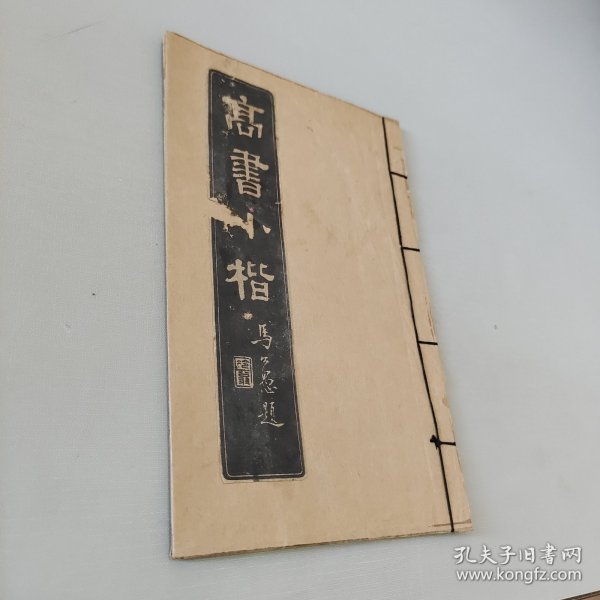 高書小楷
馬公愚題
孔夫子旧书网
www.kongfz.com